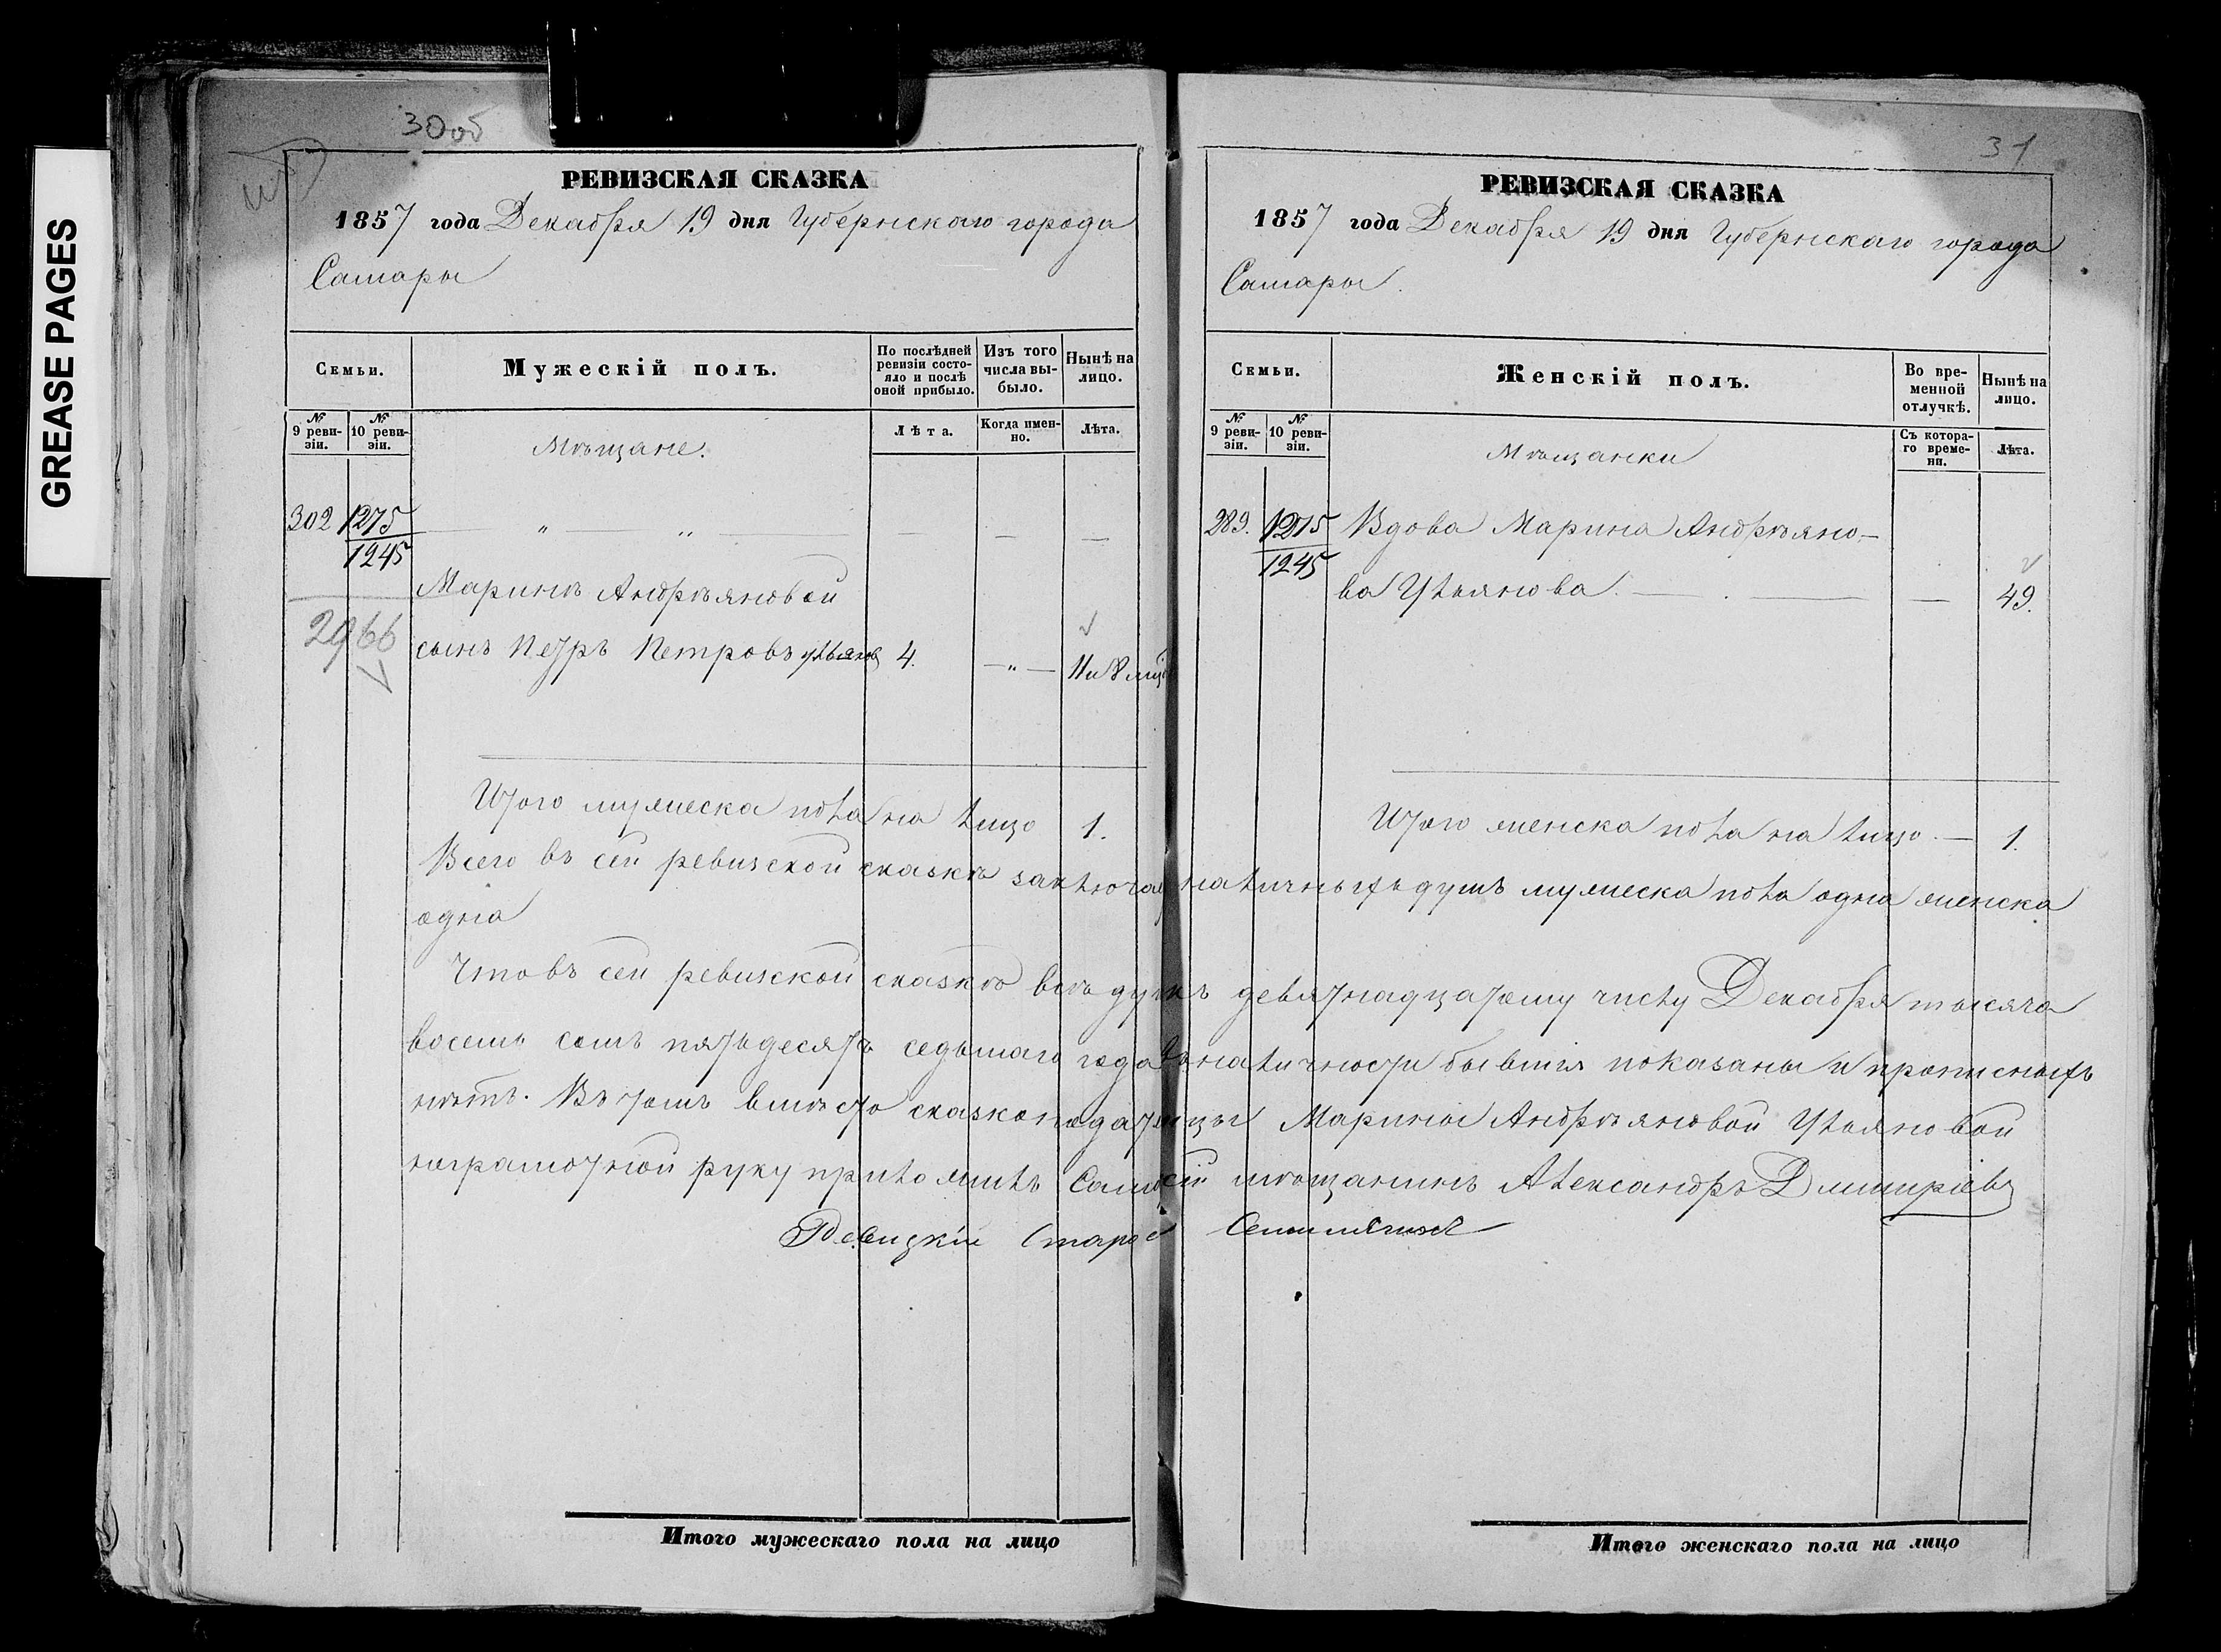 GREASE PAGES
30об
РЕВИЗСКАЯ СКАЗКА
1857 года Декабря 19 дня Губернскаго города
Самары
Семьи.
Мужескій полъ.
По послѣдней ревизіи состо-
яло и послѣ оной прибыло.
Изъ того числа вы-
было.
Нынѣ на лицо.
№ 9 реви-
зіи.
№ 10 реви-
зіи.
Мѣщане.
Лѣта.
Когда имен-
но.
Лѣта.
302 1275
1245
Маринѣ Андрѣяновой
2966
сынъ Петръ Петровъ Ульяновъ 4. — „ — 11 и 8 мцъ
Итого мужеска пола на лицо 1.
31
РЕВИЗСКАЯ СКАЗКА
1857 года Декабря 19 дня Губернскаго города
Самары.
Семьи.
Женскій полъ.
Во вре-
менной отлучкѣ.
Нынѣ на лицо.
№ 9 реви-
зіи.
№ 10 реви-
зіи.
Мѣщанки
Съ котора-
го време-
ни.
Лѣта.
289. 1275 Вдова Марина Андрѣяно-
1245
ва Ульянова. — . — — 49.
Итого женска пола на лицо. — 1.
Всего въ сей ревизской сказкѣ наличныхъ душъ мужеска пола одна женска
одна
Что въ сей ревизской сказкѣ всѣ душъ девятнадцатому числу Декабря тысяча
восемь сотъ пятьдесятъ седьмаго года въ наличности бывшія показаны и прописныхъ
нѣтъ. Въ томъ вмѣсто сказкоподательницы Марины Андрѣяновой Ульяновой
неграмотной руку приложилъ мѣщанинъ Александръ Дмитріевъ
Итого мужескаго пола на лицо
Итого женскаго пола на лицо